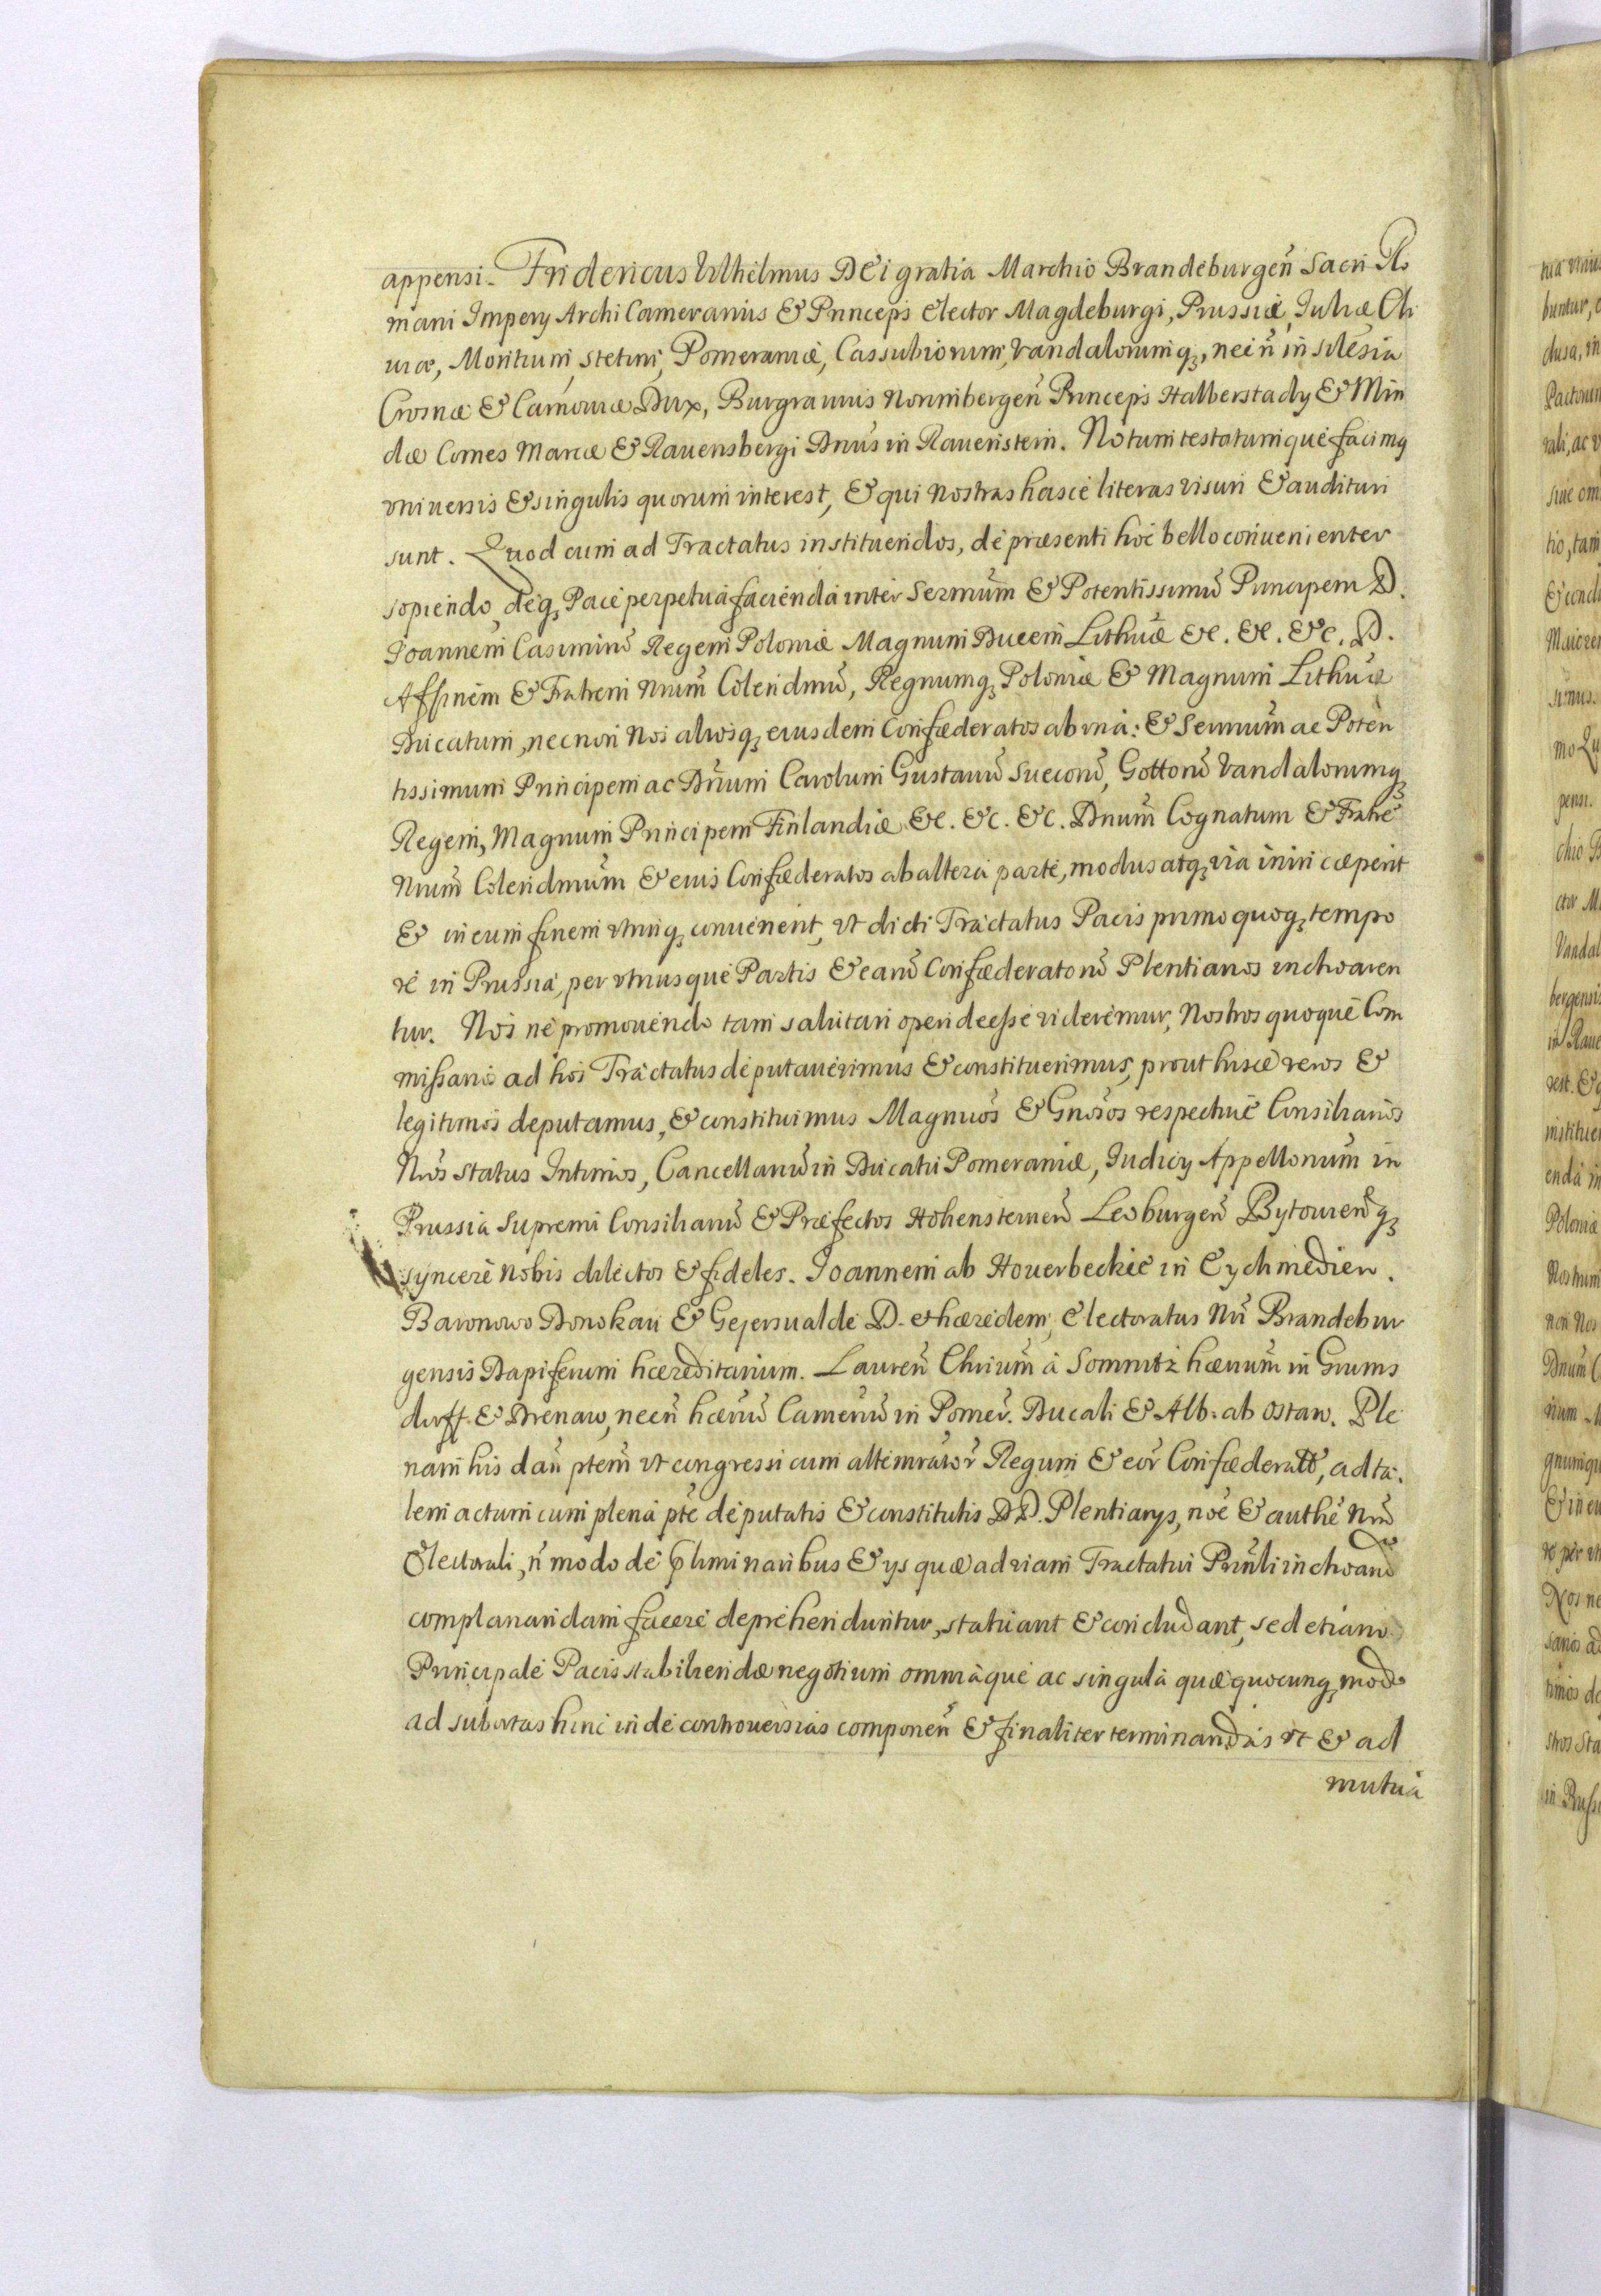 appensi. Fridericus Wilhelmus DEi gratia Marchio Brandeburgeñ Sacri Ro
mani Impery Archi Camerarius & Princeps Elector Magdeburgi, Prussiæ, Juliæ Cli
uiæ, Montium, Stetini, Pomeraniæ, Cassubiorum, Vandalorumq, necñ in Silesia
Crosnæ & Carnouiæ Dux, Burgrauius Norimbergeñ Princeps Halberstady & Min
dæ Comes Marciæ & Rauensbergi Dnus in Rauenstein. Notum testatumque facimq
vniuersis & singulis quorum interest, & qui Nostras hasce literas visuri & audituri
sunt. Quod cum ad Tractatus instituendos, de præsenti hoc bello conuenienter
sopiendo, deq Pace perpetua facienda inter Sermum & Potentissimũ Principem D.
Joannem Casimirũ Regem Poloniæ Magnum Ducem Lithuæ &c. &c. &c. D.
Affinem & Fratrem Nrum Colendmũ, Regnumq Poloniæ & Magnum Lithuæ
Ducatum, necnon Nos aliosq eiusdem Confæderatos ab vna: & Sermum ac Poten
tissimum Principem ac Dnum Carolum Gustauũ Suecorũ, Gottorũ Vandalorumq
Regem, Magnum Principem Finlandiæ &c. &c. &c. Dnum Cognatum & Fratrẽ
Nrum Colendmum & eius Confæderatos ab altera parte, modus atq via iniri cæperit
& in eum finem vtrinq conuenerit, vt dicti Tractatus Pacis primo quoq tempo
re in Prussia, per vtriusque Partis & earũ Confæderatorũ Plentiarios inchoaren
tur. Nos ne promouendo tam salutari operi deesse videremur, Nostros quoque Com
missarios ad hos Tractatus deputauerimus & constituerimus, prout hisce veros &
legitimos deputamus, & constituimus Magnuos & Gnosos respectiue Consiliarios
Nros Status Intimos, Cancellariũ in Ducatu Pomeraniæ, Judicy Appellonum in
Prussia Supremi Consiliariũ & Præfectos Hohensteineñ Leoburgeñ Bytouieñq
syncere Nobis dilectos & fideles. Joannem ab Houerbeckie in Eychmedien.
Baronowo Donskau & Gejersualde D. et hæredem, Electoratus Nri Brandebur
gensis Dapiferum hæreditarium. Laureñ Chrium à Somnitz hærium in Grums
dorff. & Drenaw, necñ hæriũ Camerũ in Pomer. Ducali & Alb: ab Ostaw. Ple
nam his dañ ptem vt congressi cum altememrator Regum & eor Confæderatt, ad ta.
lem actum cum plena pte deputatis & constitutis DD. Plentiarys, noe & authe Nrã
Electorali, ñ modo de pliminaribus & ys quæ ad viam Tractatui Prinli inchoand
complanandam facere deprehenduntur, statuant & concludant, sed etiam
Principale Pacis stabiliendæ negotium omniaque ac singula quæ quocunq modo
ad subortas hinc inde controuersias componeñ & finaliter terminandas vt & ad
mutua